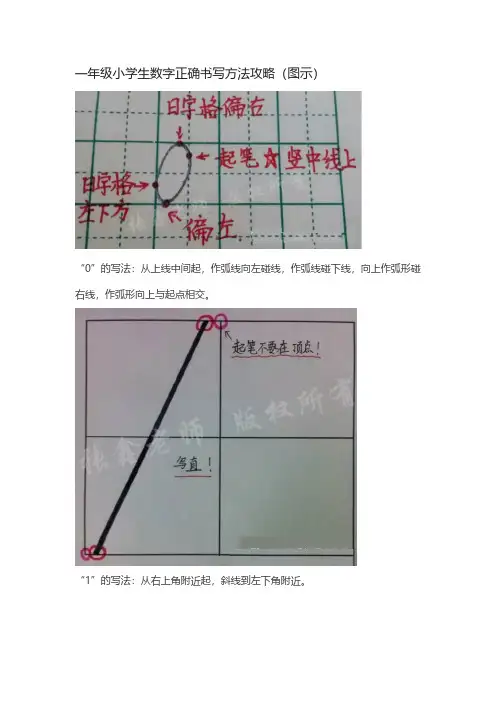 一年级小学生数字正确书写方法攻略（图示）
日字格偏右
起笔☆竖中线上
日字格
左下方
偏左
“0”的写法：从上线中间起，作弧线向左碰线，作弧线碰下线，向上作弧形碰
右线，作弧形向上与起点相交。
起笔不要在顶点！
张鑫老师 版权所有
写直！
“1”的写法：从右上角附近起，斜线到左下角附近。